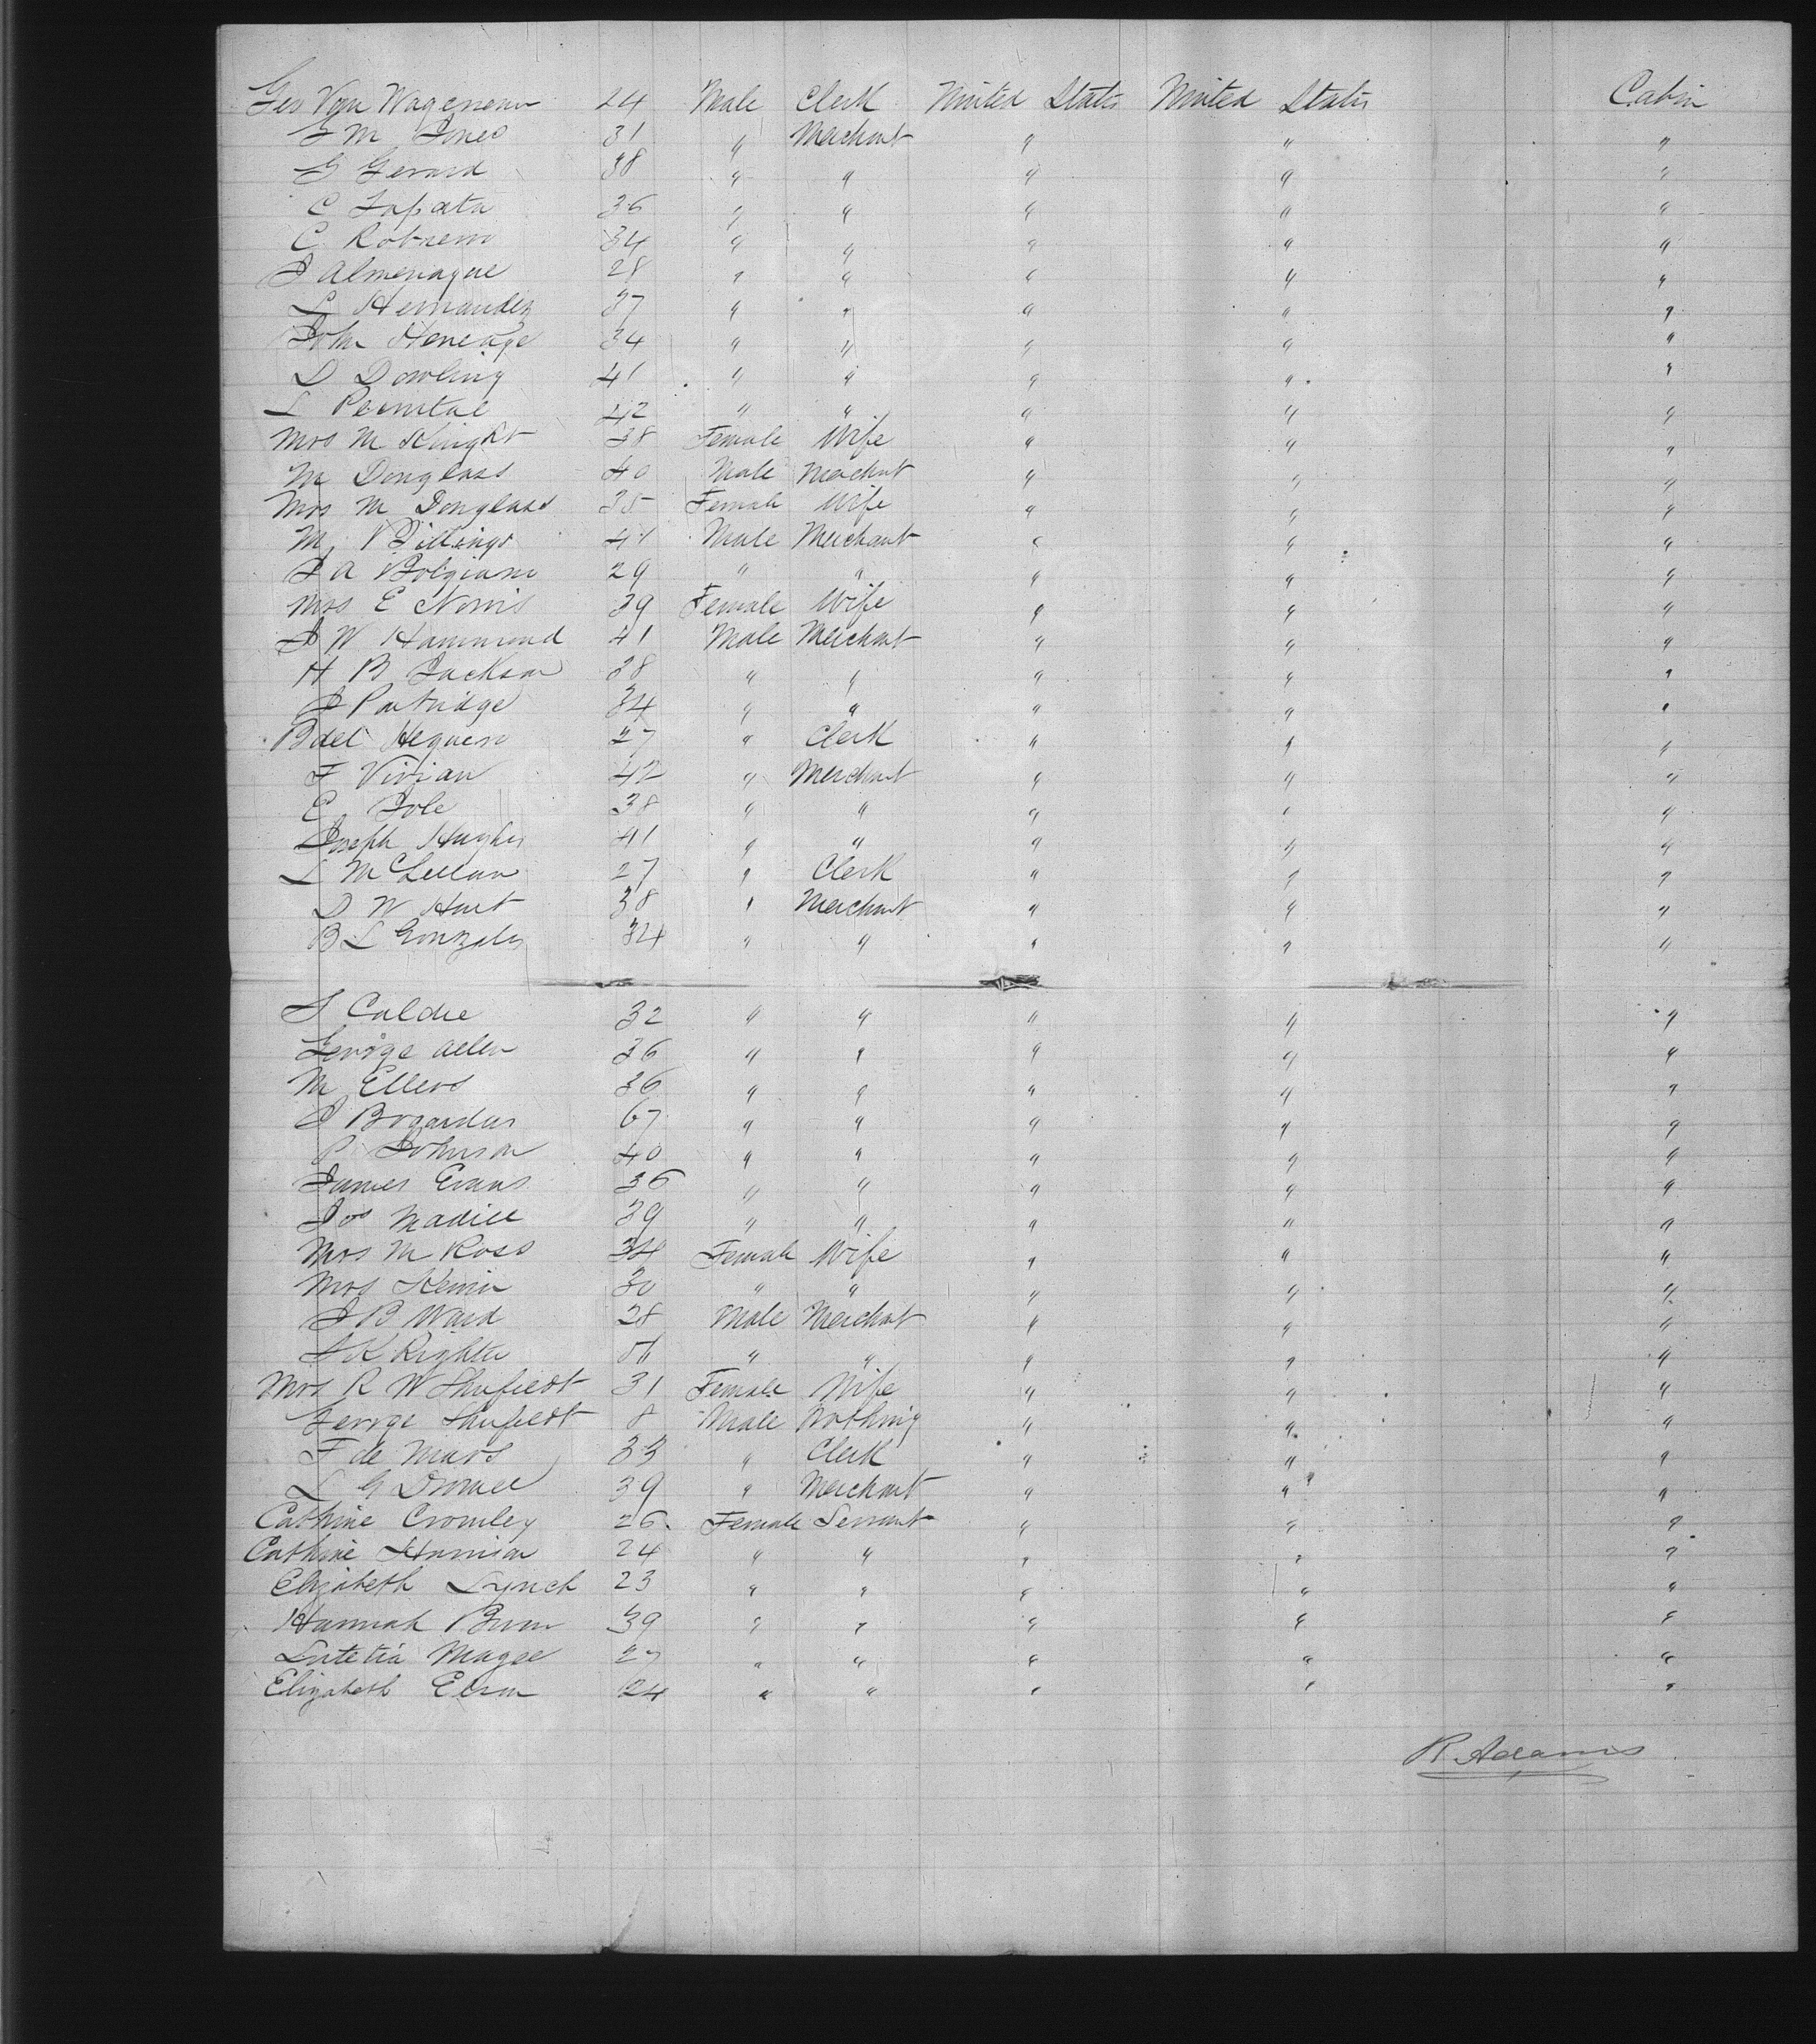 Geo Van Wagenenen 24 Male Clerk United States United States Cabin
G M Jones 31 " Merchant " " "
G Gerard 38 " " " " "
C Zapata 36 " " " " "
C. 34 " " " " "
J Almenague 28 " " " " "
L Hernandez 37 " " " " "
John Heneage 34 " " " " "
D Dowling 41 " " " " "
L 42 " " " " "
Mrs M Knight 38 Female Wife " " "
M Douglass 40 Male Merchant " " "
Mrs M Douglass 35 Female Wife " " "
M Billings 41 Male Merchant " " "
J A Bolgiano 29 " " " " "
Mrs E Norris 39 Female Wife " " "
J W Hammond 41 Male Merchant " " "
H B Jackson 38 " " " " "
J Partridge 34 " " " " "
27 " Clerk " " "
F Vivian 42 " Merchant " " "
E Sole 38 " " " " "
Joseph Hughes 41 " " " " "
L McLellan 27 " Clerk " " "
D W Hart 38 " Merchant " " "
B L Gonzales 34 " " " " "
S 32 " " " " "
George Allen 36 " " " " "
M Ellers 36 " " " " "
J Bogardus 67 " " " " "
P Johnson 40 " " " " "
James Evans 36 " " " " "
Jos Madill 39 " " " " "
Mrs M Ross 34 Female Wife " " "
Mrs 30 " " " " "
J B Ward 28 Male Merchant " " "
S K Righter " " " " "
Mrs R W Shufeldt 31 Female Wife " " "
George Shufeldt 8 Male Nothing " " "
F de Mars 33 " Clerk " " "
L G 39 " Merchant " " "
Cathine Cromley 26 Female Servant " " "
Cathine Harrison 24 " " " " "
Elizabeth Lynch 23 " " " " "
Hannah 39 " " " " "
Lutetia Magee 27 " " " " "
Elizabeth 24 " " " " "
R. Adams